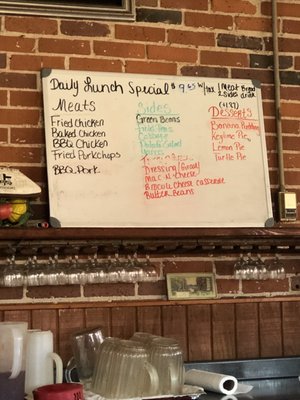 Daily Lunch Special
1 Meat
2 Sides
Bread
drink
Meats
Fried Chicken
Baked Chicken
BBQ Chicken
Fried Porkchops
BBQ Pork
Sides
Green Beans
Cabbage
Potato Salad
Dressing/Gravy
Mac-N-Cheese
Broccoli Cheese Casserole
Butter Beans
Desserts
Banana Pudding
Keylime Pie
Lemon Pie
Turtle Pie